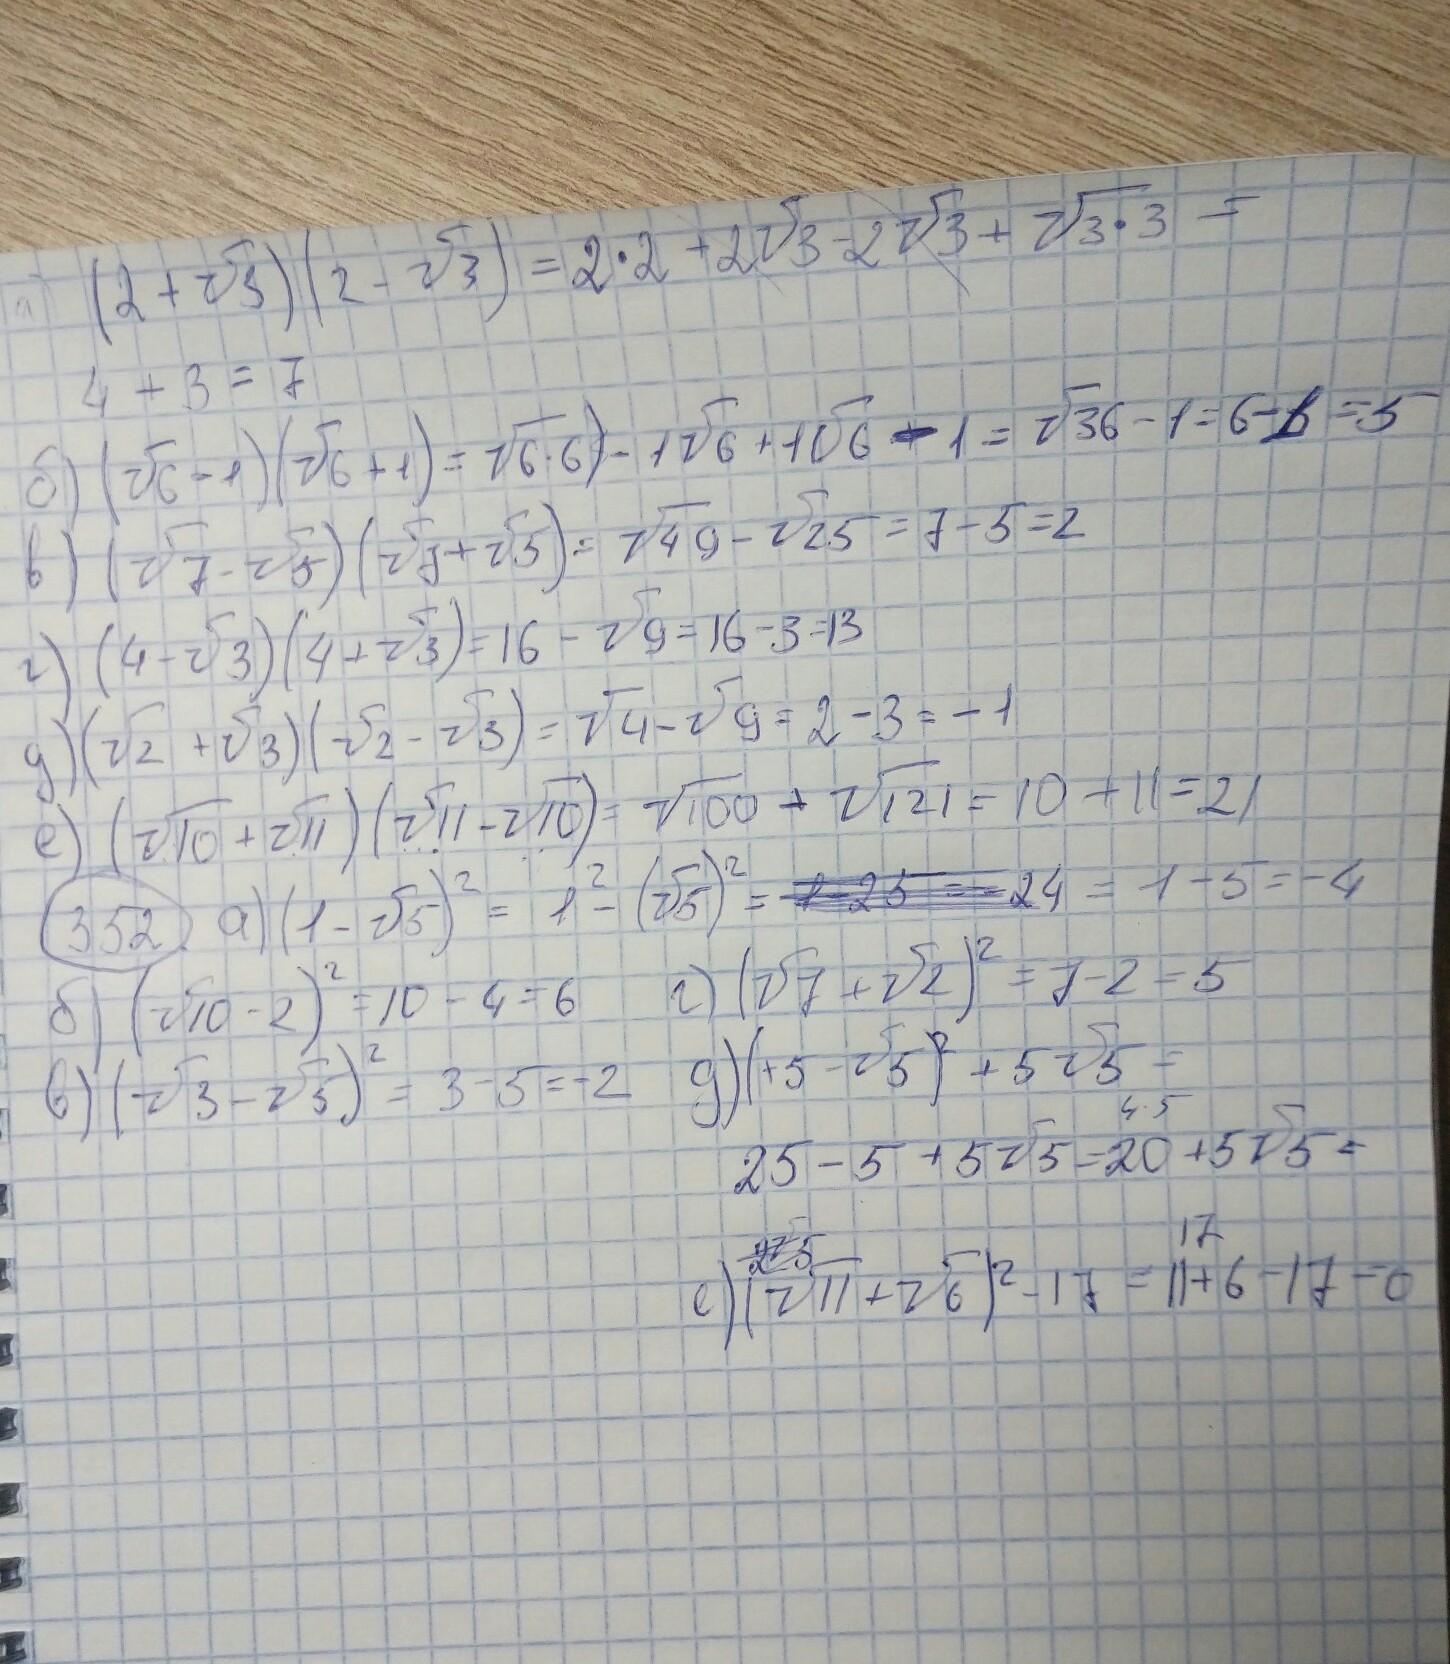 а) (2+√3)(2-√3) = 2·2 +2√3-2√3+ √3·3 =
4 + 3 = 7
б) (√6-1)(√6+1) = √6·6) - 1√6 +1√6 - 1 = √36 -1 = 6-1 = 5
в) (√7-√5)(√7+√5) = √49 - √25 = 7-5=2
г) (4-√3)(4+√3) = 16 - √9 = 16-3=13
д) (√2 +√3)(√2 - √3) = √4 - √9 = 2-3 = -1
е) (√10 + √11)(√11 - √10) = √100 + √121 = 10 + 11 = 21
352 а) (1-√5)² = 1² - (√5)² = 1-25 = -24 = 1-5=-4
б) (√10-2)² = 10 - 4 = 6
в) (√3-√5)² = 3-5=-2
г) (√7+√2)² = 7-2 = 5
д) (+5-√5)² + 5√5 =
4·5
25-5+5√5=20+5√5=
17
е) (√11+√6)² -17 = 11+6-17=0